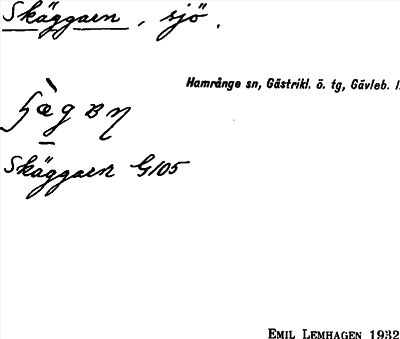 Skäggaren, sjö.
Hamrånge sn, Gästrikl. ö. tg, Gävleb. l.
Skäggaren G105
EMIL LEMHAGEN 1932